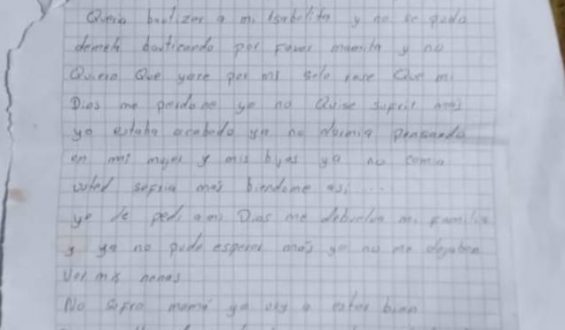 Quería bautizar a mi Isabelita y no se pudo
demen bauticando por favor mamita y no
Quiero Que yore por mi solo rare Que mi
Dios me perdone yo no Quise sufrir mas
yo estaba acabado ya no dormia pensando
en mi mujer y mis byas ya no comia
usted sufria mas biendome asi....
yo le pedi a mi Dios me debuelva mi familia
y ya no pude esperar mas yo no me dejaban
ver mis nenas
No sufra mamá yo voy a estar bien